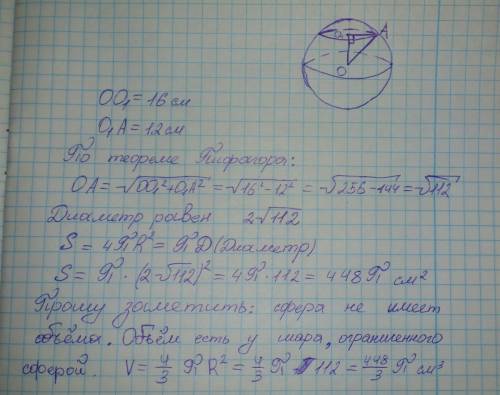 O₁ A
O
OO₁ = 16 см
O₁A = 12 см
По теореме Пифагора:
OA = √OO₁²+O₁A² = √16²-12² = √256-144 = √112
Диаметр равен 2√112
S = 4ПR² = ПD (Диаметр)
S = П · (2√112)² = 4П·112 = 448П см²
Прошу заметить: сфера не имеет
объёма. Объём есть у шара, ограниченного
сферой. V = 4/3 ПR² = 4/3 П 112 = 448/3 П см³